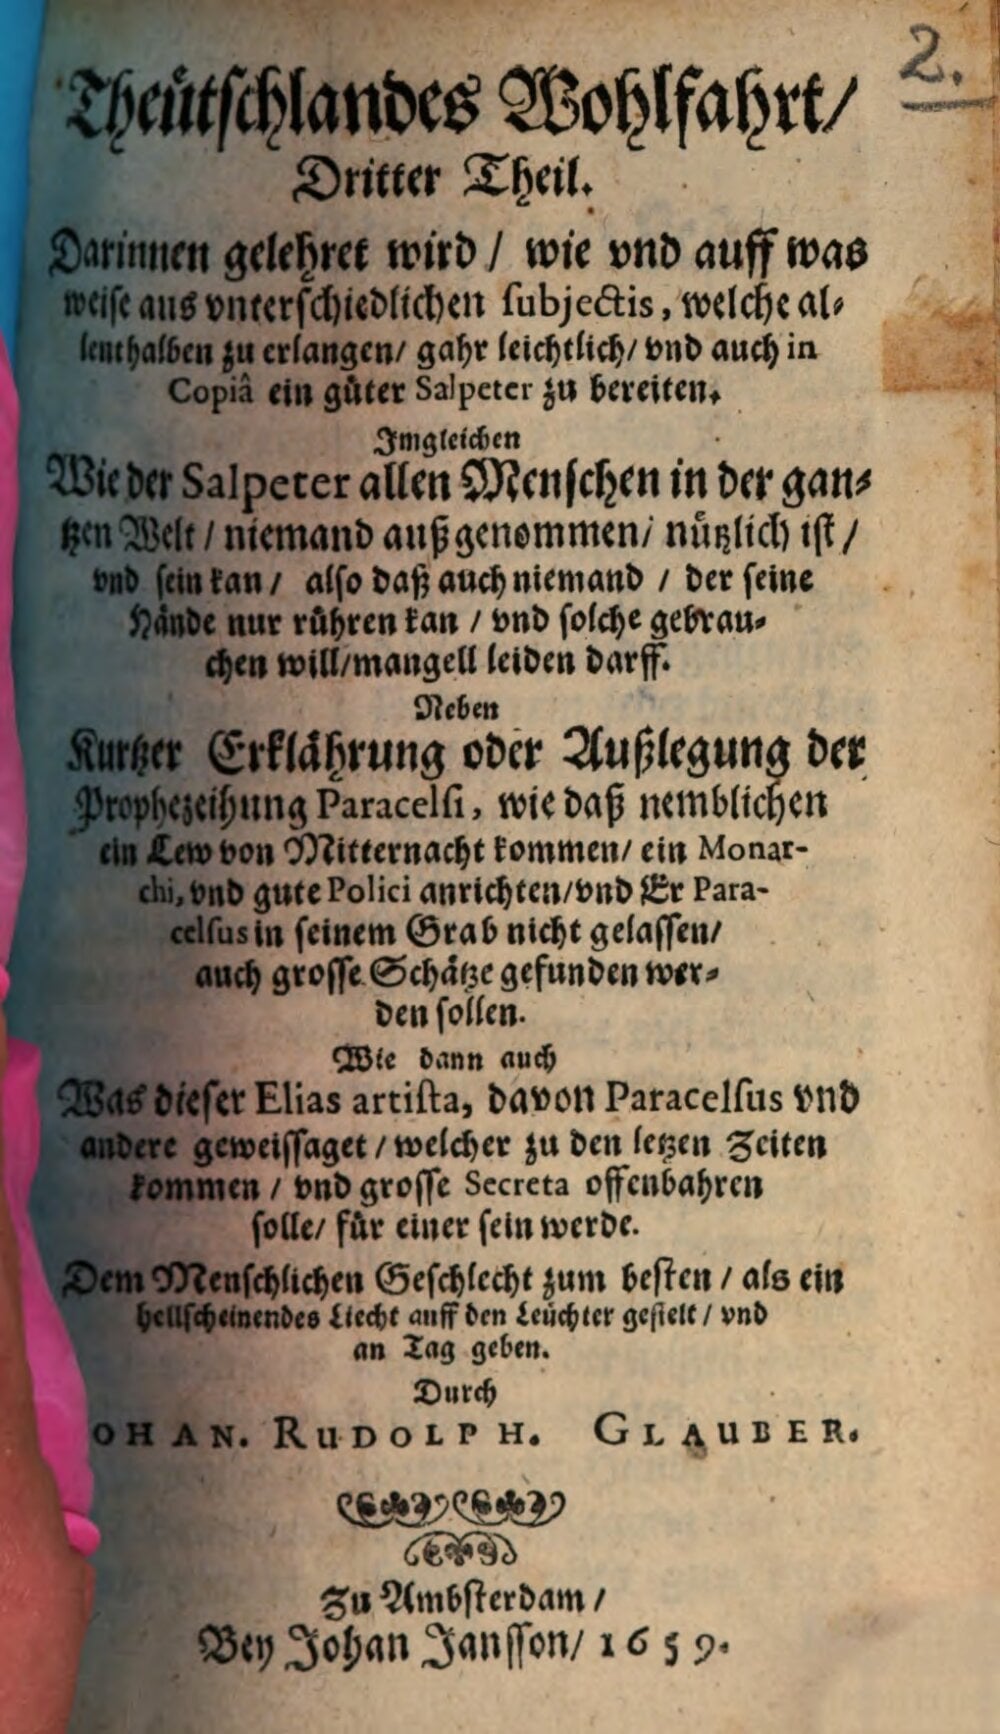 2.
Theůtschlandes Wohlfahrt/
Dritter Theil.
Darinnen gelehret wird / wie vnd auff was
weise aus vnterschiedlichen subjectis, welche al-
lenthalben zu erlangen/ gahr leichtlich/ vnd auch in
Copiâ ein gůter Salpeter zu bereiten.
Imgleichen
Wie der Salpeter allen Menschen in der gan-
tzen Welt / niemand außgenommen/ nůtzlich ist /
vnd sein kan / also daß auch niemand / der seine
Hånde nur růhren kan / vnd solche gebrau-
chen will/mangell leiden darff.
Neben
Kurtzer Erklåhrung oder Außlegung der
Prophezeihung Paracelsi, wie daß nemblichen
ein Lew von Mitternacht kommen/ ein Monar-
chi, vnd gute Polici anrichten/vnd Er Para-
celsus in seinem Grab nicht gelassen/
auch grosse Schåtze gefunden wer-
den sollen.
Wie dann auch
Was dieser Elias artista, davon Paracelsus vnd
andere geweissaget / welcher zu den letzen Zeiten
kommen / vnd grosse Secreta offenbahren
solle/ fůr einer sein werde.
Dem Menschlichen Geschlecht zum besten / als ein
hellscheinendes Liecht auff den Leůchter gestelt / vnd
an Tag geben.
Durch
OHAN. RUDOLPH. GLAUBER.
Zu Ambsterdam /
Bey Johan Jansson/ 1659.